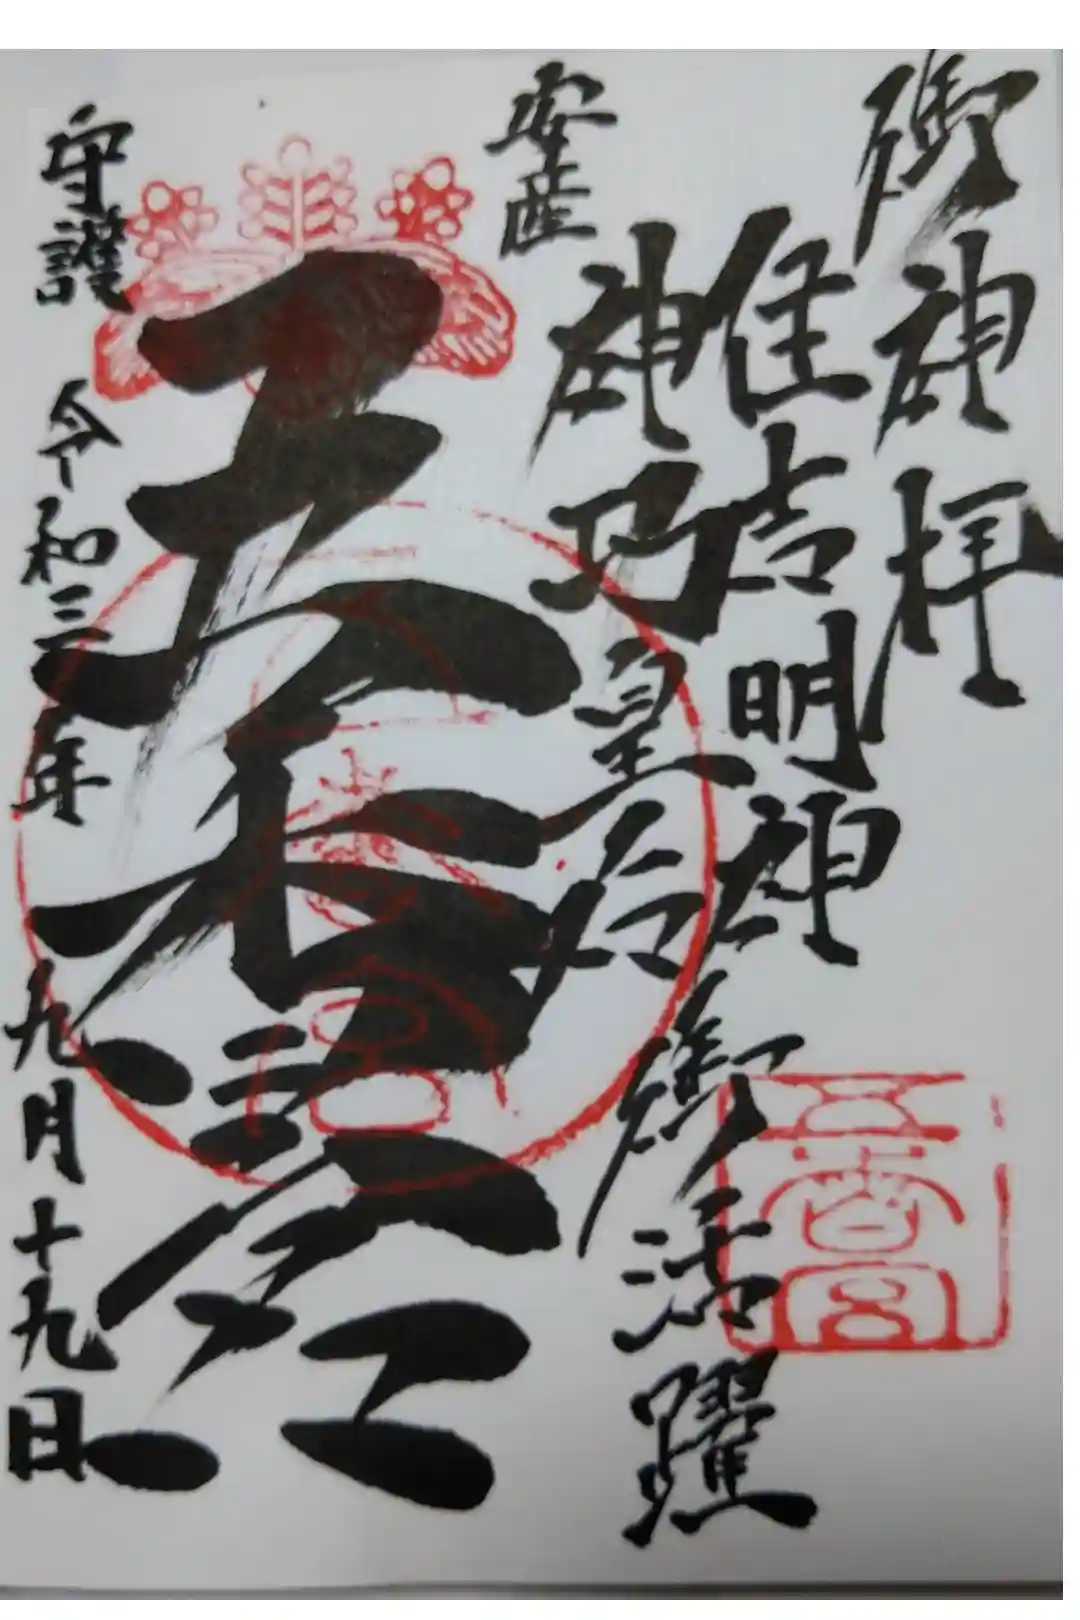 御神拝
住吉明神
神功皇后
御活躍
安産
五香宮
守護
令和三年九月十九日
五香宮